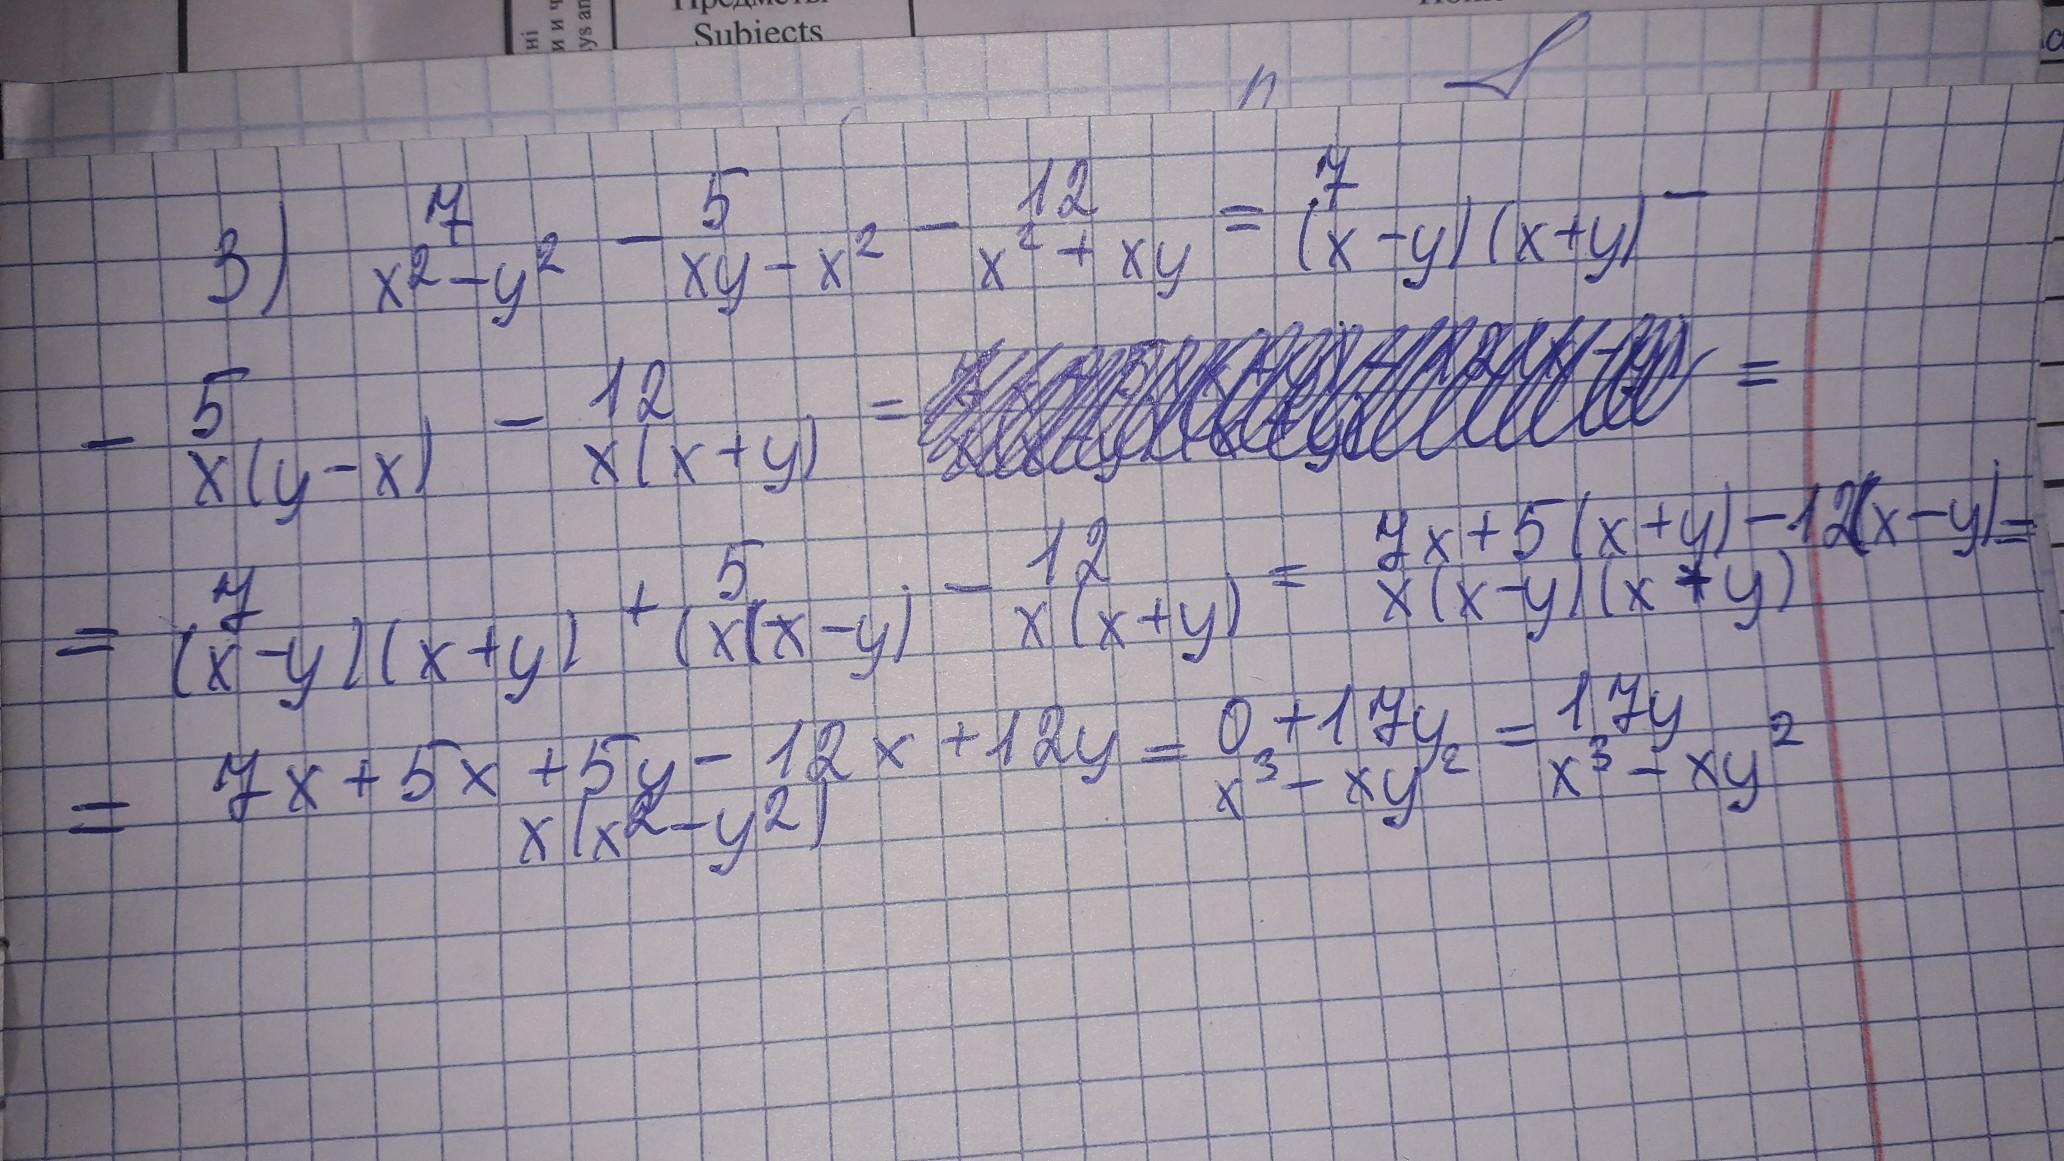 Subjects
3) 7/(x² - y²) - 5/(xy - x²) - 12/(x² + xy) = 7/((x - y)(x + y)) -
- 5/(x(y - x)) - 12/(x(x + y)) = =
= 7/((x - y)(x + y)) + 5/((x(x - y)) - 12/(x(x + y)) = (7x + 5(x + y) - 12(x - y))/(x(x - y)(x + y)) =
= (7x + 5x + 5y - 12x + 12y)/(x(x² - y²)) = (0 + 17y)/(x³ - xy²) = 17y/(x³ - xy²)